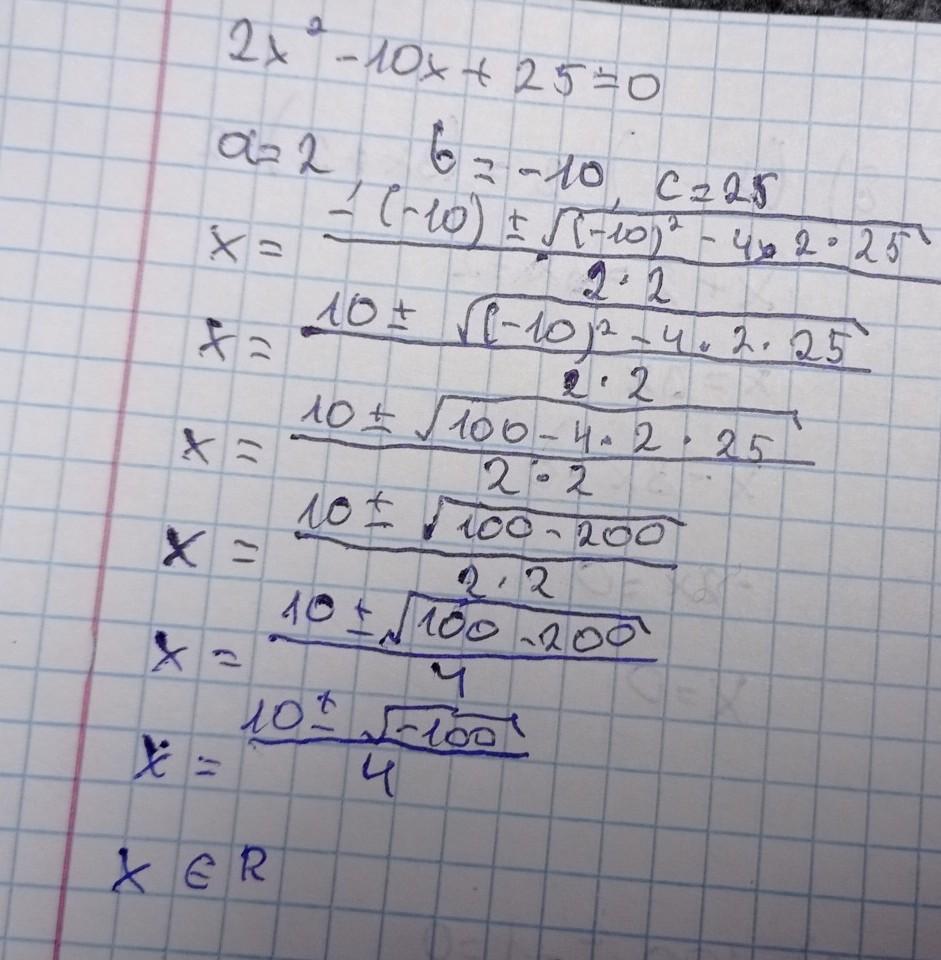 2x² - 10x + 25 = 0
a = 2, b = -10, c = 25
x = (-(-10) ± √((-10)² - 4 · 2 · 25)) / (2 · 2)
x = (10 ± √((-10)² - 4 · 2 · 25)) / (2 · 2)
x = (10 ± √(100 - 4 · 2 · 25)) / (2 · 2)
x = (10 ± √(100 - 200)) / (2 · 2)
x = (10 ± √(100 - 200)) / 4
x = (10 ± √(-100)) / 4
x ∈ R